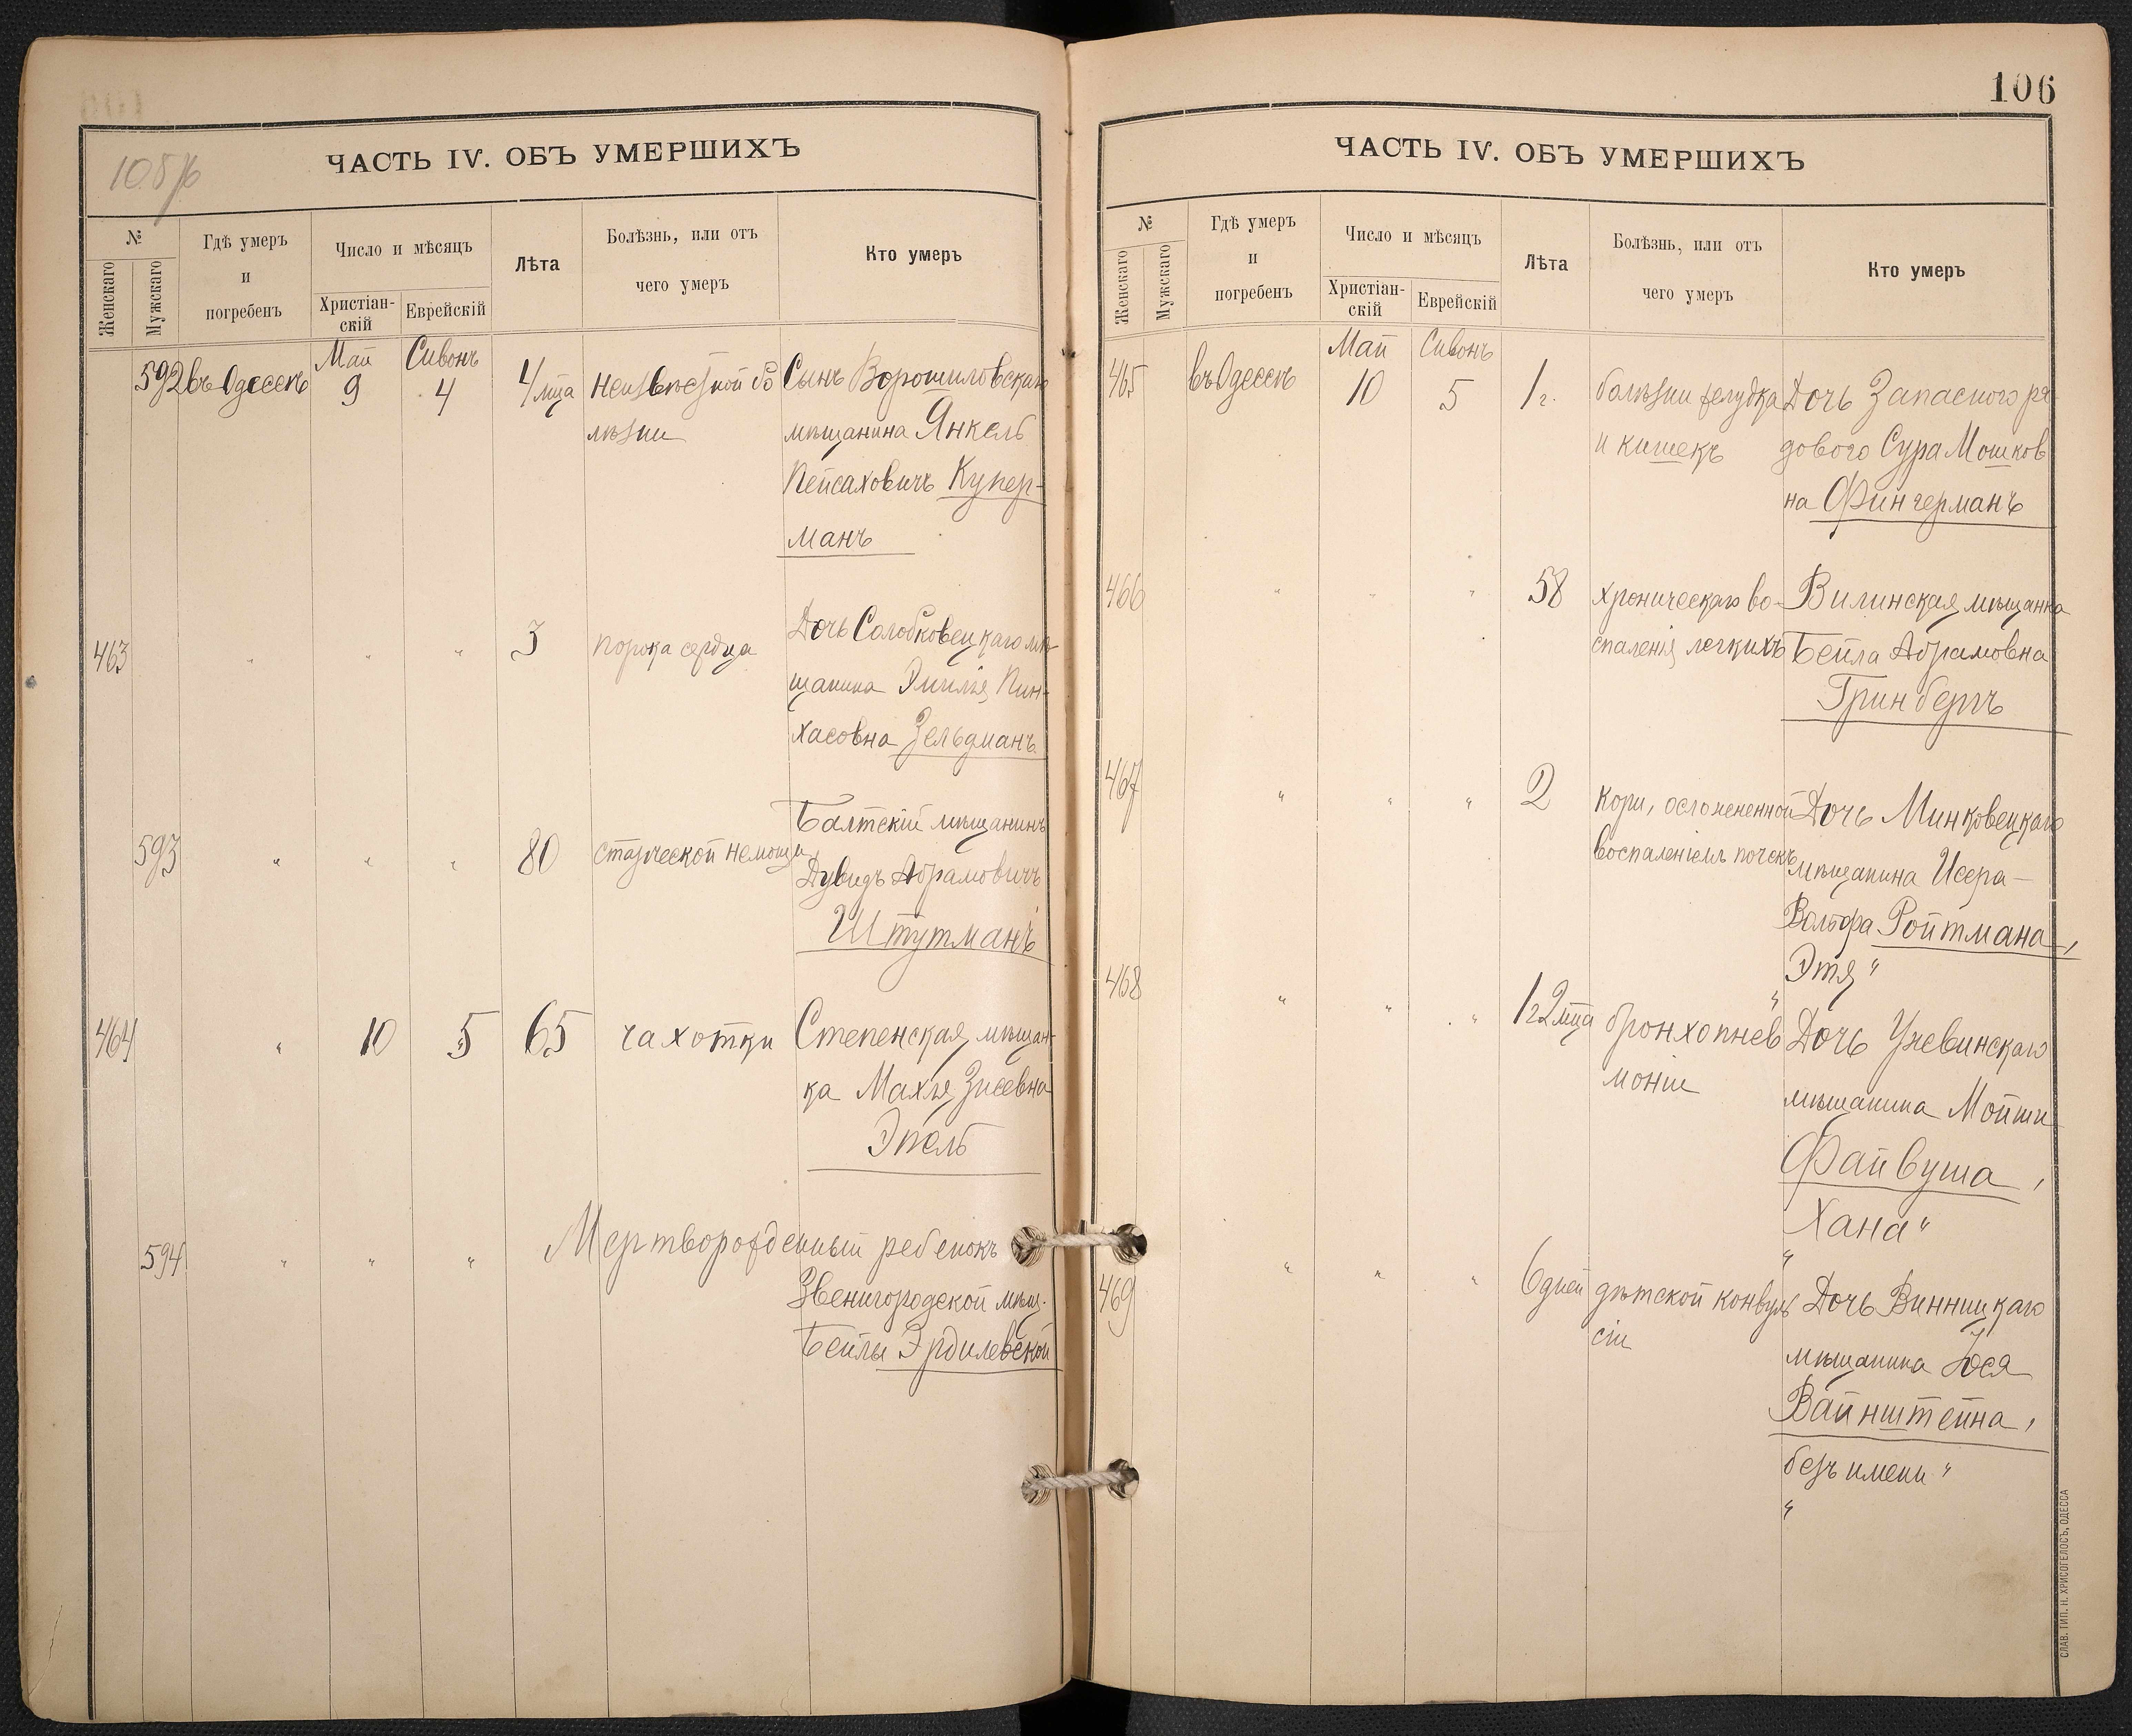 105 об
ЧАСТЬ IV. ОБЪ УМЕРШИХЪ
№
Женскаго
Мужскаго
Гдѣ умеръ
и
погребенъ
Число и мѣсяцъ
Христіан-
скій
Еврейскій
Лѣта
Болѣзнь, или отъ
чего умеръ
Кто умеръ
Май Сивонъ
592 въ Одессѣ 9 4 4 мца неизвѣстной бо Сынъ Ворошиловскаго
лѣзни мѣщанина Янкель
Пейсаховичъ Купер-
манъ
463 " " " 3 порока сердца Дочь Солобковецкаго мѣ-
щанина Эмилія Пин-
хасовна Зельдманъ
593 " " " 80 старческой немощи Балтскій мѣщанинъ
Дувидъ Абрамовичъ
Штутманъ
464 " 10 5 65 чахотки Степенская мѣщан-
ка Махля Зисевна
Эпель
594 " " " Мертворожденный ребенокъ
Звенигородской мѣщ.
Бейлы Эрдилевской
106
ЧАСТЬ IV. ОБЪ УМЕРШИХЪ
№
Женскаго
Мужскаго
Гдѣ умеръ
и
погребенъ
Число и мѣсяцъ
Христіан-
скій
Еврейскій
Лѣта
Болѣзнь, или отъ
чего умеръ
Кто умеръ
Май Сивонъ
465 въ Одессѣ 10 5 1 г. болѣзни желудка Дочь Запаснаго ря
и кишекъ дового Сура Мошков
на Фингерманъ
466 " " " 58 хроническаго во- Вилинская мѣщанка
спаленія легкихъ Бейла Абрамовна
Гринбергъ
467 " " " 2 кори, осложненной Дочь Минковецкаго
воспаленіемъ почекъ мѣщанина Исера-
Вольфа Ройтмана,
Этя "
"
468 " " " 1 г 2 мца бронхопнев Дочь Уневинскаго
моніи мѣщанина Мойши
Файвуша,
Хана "
"
469 " " " 6 дней дѣтской конвуль Дочь Винницкаго
сіи мѣщанина Іося
Вайнштейна,
безъ имени "
"
СЛАВ. ТИП. Н. ХРИСОГЕЛОСЪ, ОДЕССА